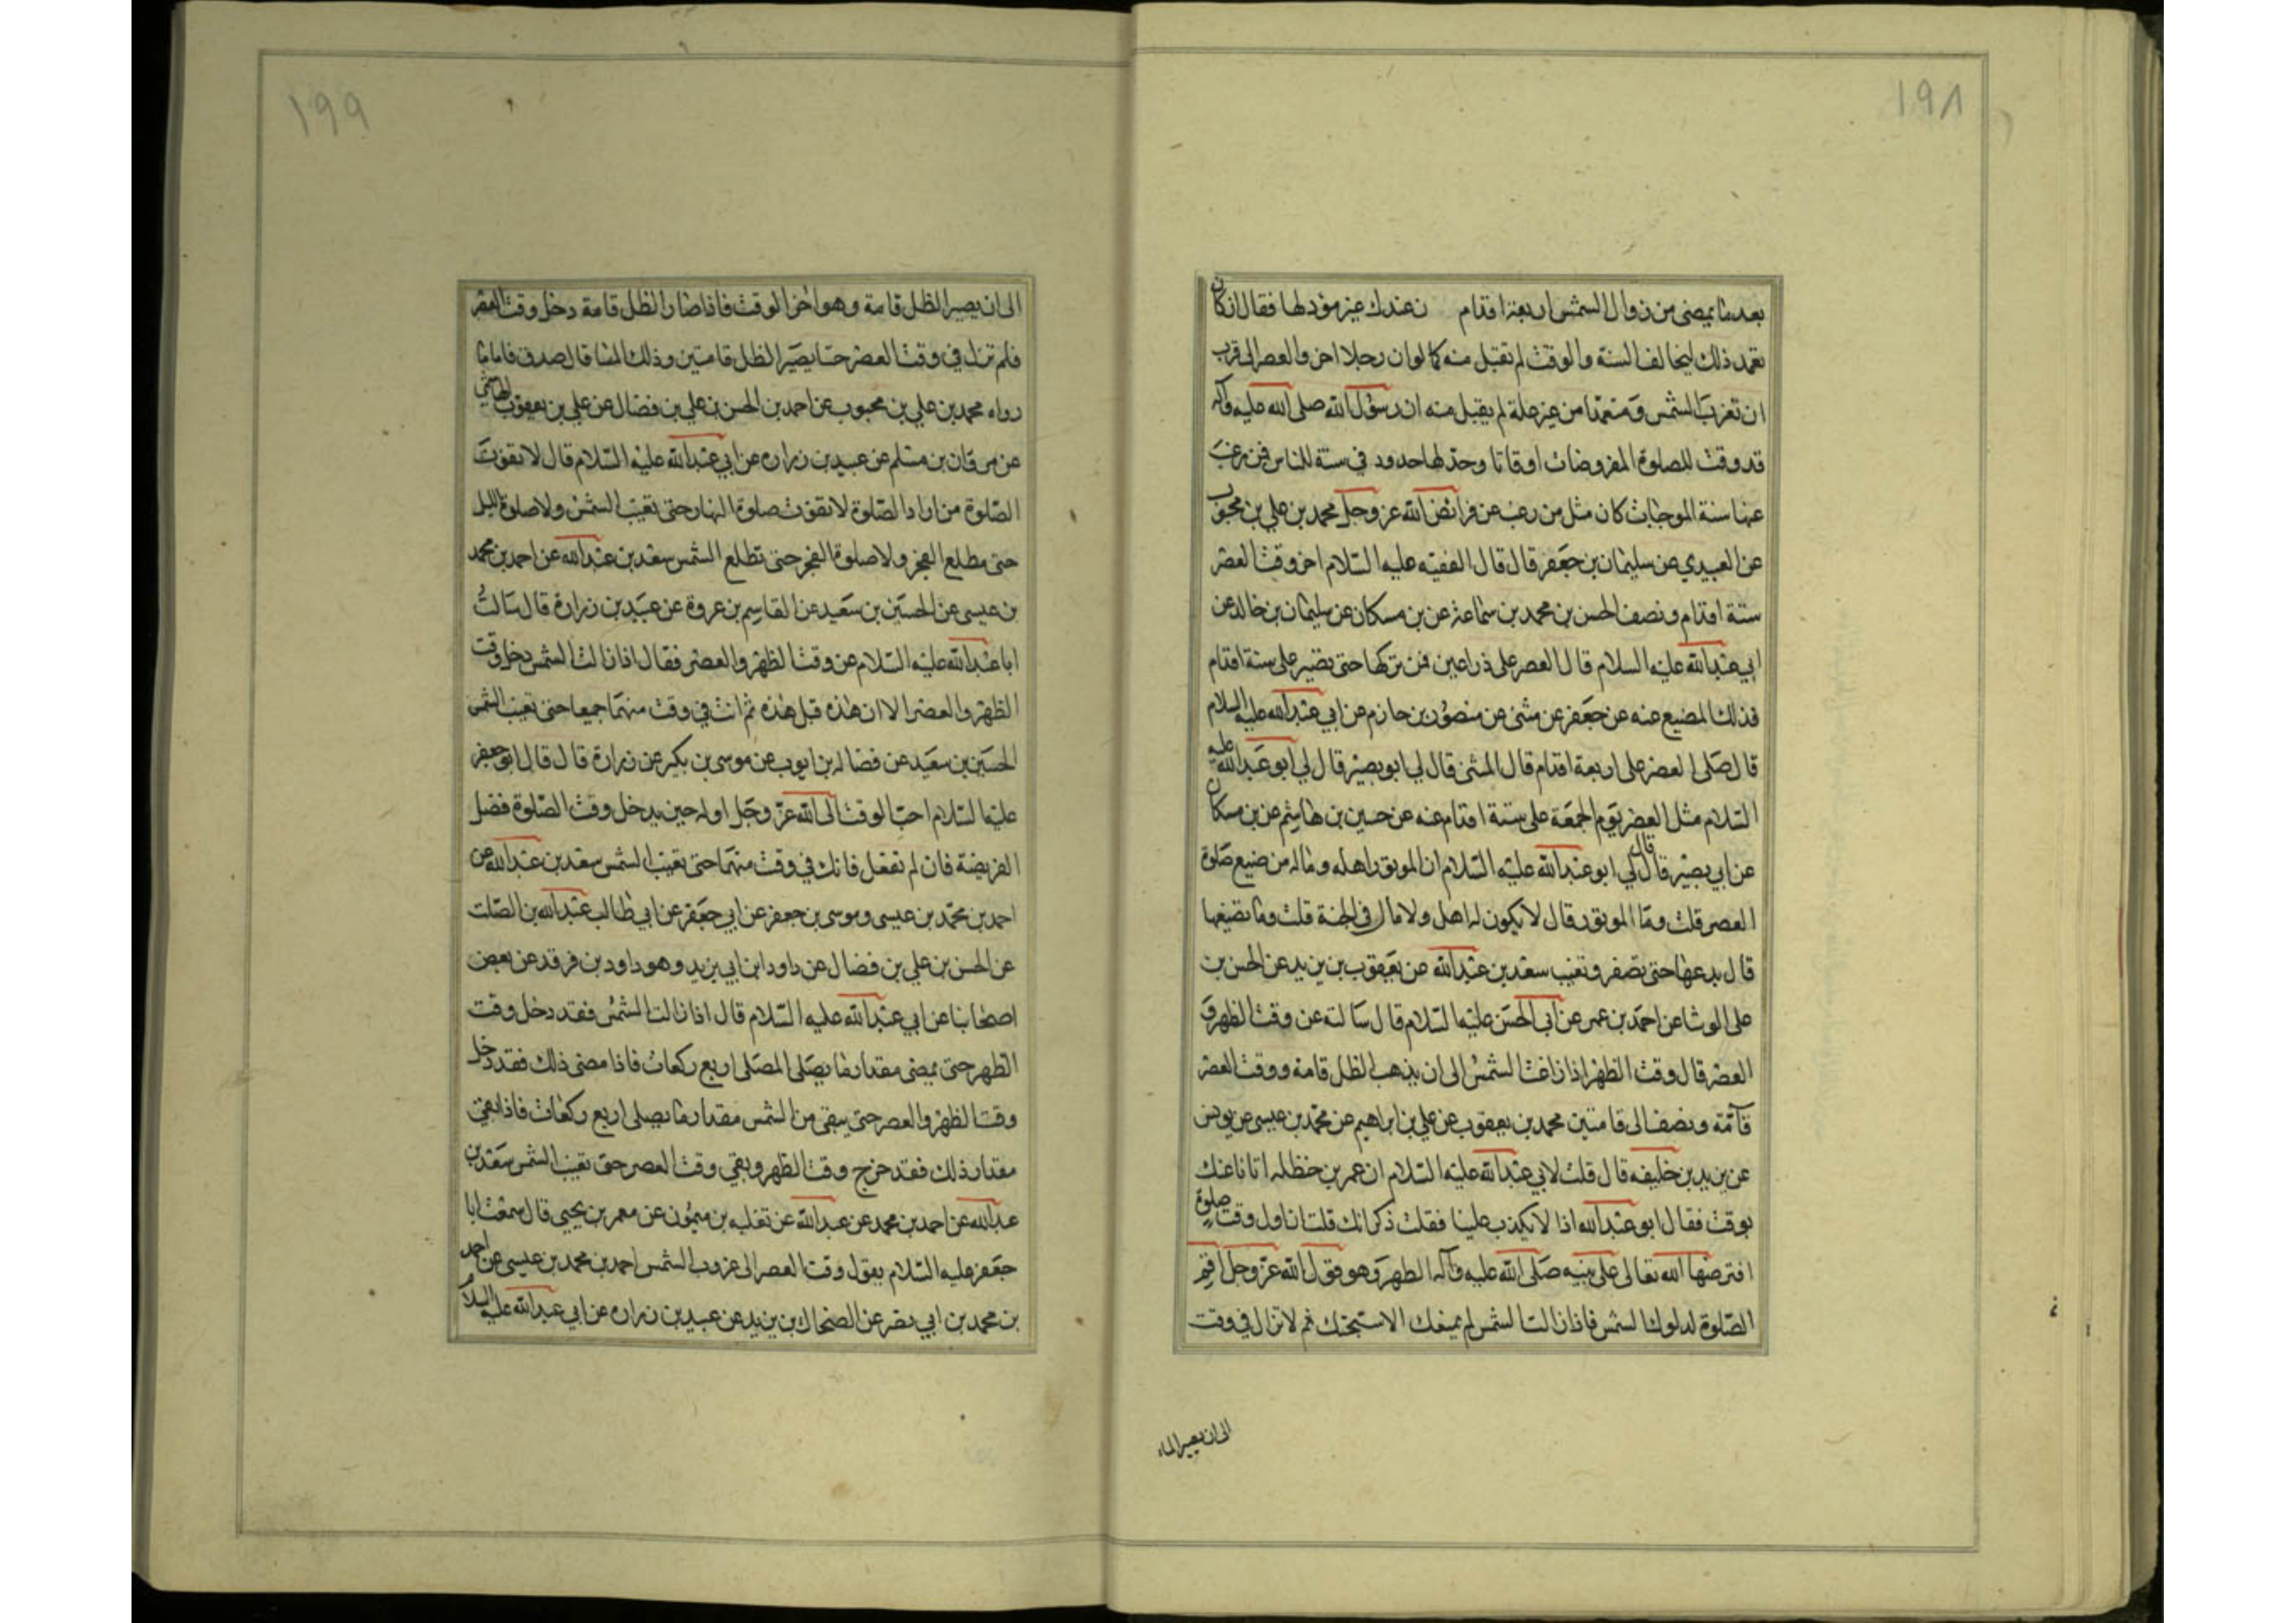 ١٩٨
بعد ما يمضى من زوال الشمس اربعة اقدام ن عندك غير مؤد لها فقال ان كان
تعمد ذلك ليخالف السنة والوقت لم تقبل منه كما لو ان رجلا اخر والعصر الى قرب
ان تغرب الشمس ومتعمدا من غير علة لم يقبل منه ان رسول الله صلى الله عليه وآله
قد وقت للصلوة المفروضات اوقاتا وحد لها حدود في سنة للناس فمن رغب
عنها سنة الموجبات كان مثل من رغب عن فرائض الله عز وجل محمد بن علي بن محبوب
عن العبيدي عن سليمان بن جعفر قال قال الفقيه عليه السلام اخر وقت العصر
ستة اقدام ونصف الحسن بن محمد بن سماعة عن بن مسكان عن سليمان بن خالد عن
ابي عبد الله عليه السلام قال العصر على ذراعين فمن تركها حتى تصير على ستة اقدام
فذلك المضيع عنه عن جعفر عن مثنى عن منصور بن حازم عن ابي عبد الله عليه السلام
قال صلى العصر على اربعة اقدام قال المثنى قال لي ابو بصير قال لي ابو عبد الله عليه
السلام مثل العصر يوم الجمعة على ستة اقدام عنه عن حسين بن هاشم عن بن مسكان
عن ابي بصير قال قال لي ابو عبد الله عليه السلام ان الموتور اهله وماله من ضيع صلوة
العصر قلت وما الموتور قال لا يكون له اهل ولا مال في الجنة قلت وما تضيعها
قال يدعها حتى تصفر وتغيب سعد بن عبد الله عن يعقوب بن يزيد عن الحسن بن
علي الوشا عن احمد بن عمر عن ابي الحسن عليه السلام قال سالته عن وقت الظهر و
العصر قال وقت الظهر اذا زاغت الشمس الى ان يذهب الظل قامة ووقت العصر
قامة ونصف الى قامتين محمد بن يعقوب عن علي بن ابراهيم عن محمد بن عيسى عن يونس
عن يزيد بن خليفه قال قلت لابي عبد الله عليه السلام ان عمر بن حنظله اتانا عنك
بوقت فقال ابو عبد الله اذا لا يكذب علينا فقلت ذكر انك قلت ان اول وقت صلوة
افترضها الله تعالى على نبيه صلى الله عليه وآله الظهر وهو قول الله عز وجل اقم
الصلوة لدلوك الشمس فاذا زالت الشمس لم يمنعك الا سبحتك ثم لا تزال في وقت
١٩٩
الى ان يصير الظل قامة وهو اخر الوقت فاذا صار الظل قامة دخل وقت العصر
فلم تزل في وقت العصر حتا يصير الظل قامتين وذلك المسا قال صدق فاما ما
رواه محمد بن علي بن محبوب عن احمد بن الحسن بن علي بن فضال عن علي بن يعقوب الهاشمي
عن مروان بن مسلم عن عبيد بن زراره عن ابي عبد الله عليه السلام قال لا تفوت
الصلوة من اراد الصلوة لا تفوت صلوة النهار حتى تغيب الشمس ولا صلوة الليل
حتى مطلع الفجر ولا صلوة الفجر حتى تطلع الشمس سعد بن عبد الله عن احمد بن محمد
بن عيسى عن الحسين بن سعيد عن القاسم بن عروة عن عبيد بن زرارة قال سالت
ابا عبد الله عليه السلام عن وقت الظهر والعصر فقال اذا زالت الشمس دخل وقت
الظهر والعصر الا ان هذه قبل هذه ثم انت في وقت منهما جميعا حتى تغيب الشمس
الحسين بن سعيد عن فضاله بن ايوب عن موسى بن بكير عن زرارة قال قال ابو جعفر
عليه السلام احب الوقت الى الله عز وجل اوله حين يدخل وقت الصلوة فصل
الفريضة فان لم تفعل فانك في وقت منهما حتى تغيب الشمس سعد بن عبد الله عن
احمد بن محمد بن عيسى وموسى بن جعفر عن ابي جعفر عن ابي طالب عبد الله بن الصلت
عن الحسن بن علي بن فضال عن داود ابن ابي يزيد وهو داود بن فرقد عن بعض
اصحابنا عن ابي عبد الله عليه السلام قال اذا زالت الشمس فقد دخل وقت
الظهر حتى يمضى مقدار ما يصلى المصلى اربع ركعات فاذا مضى ذلك فقد دخل
وقت الظهر والعصر حتى يبقى من الشمس مقدار ما يصلى اربع ركعات فاذا بقى
مقدار ذلك فقد خرج وقت الظهر وبقي وقت العصر حتى تغيب الشمس سعد بن
عبد الله عن احمد بن محمد عن عبد الله عن ثعلبه بن ميمون عن معمر بن يحيى قال سمعت ابا
جعفر عليه السلام يقول وقت العصر الى غروب الشمس احمد بن محمد بن عيسى عن احمد
بن محمد بن ابي نصر عن الضحاك بن يزيد عن عبيد بن زراره عن ابي عبد الله عليه السلام
الى ان يصير